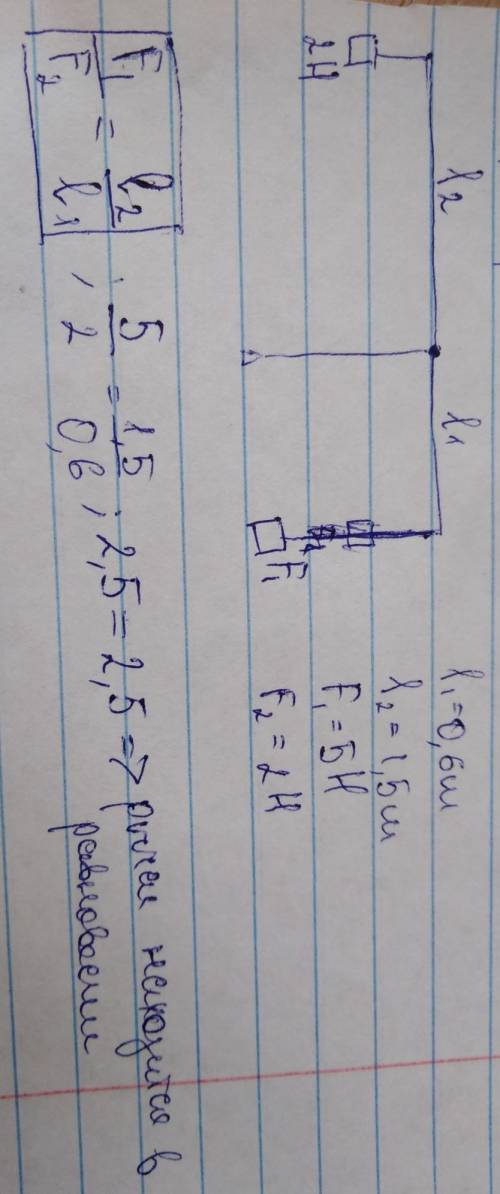 l₂ l₁
2Н
F₁
l₁ = 0,6м
l₂ = 1,5м
F₁ = 5Н
F₂ = 2Н
F₁/F₂ = l₂/l₁ ; 5/2 = 1,5/0,6 ; 2,5 = 2,5 => рычаг находится в
равновесии